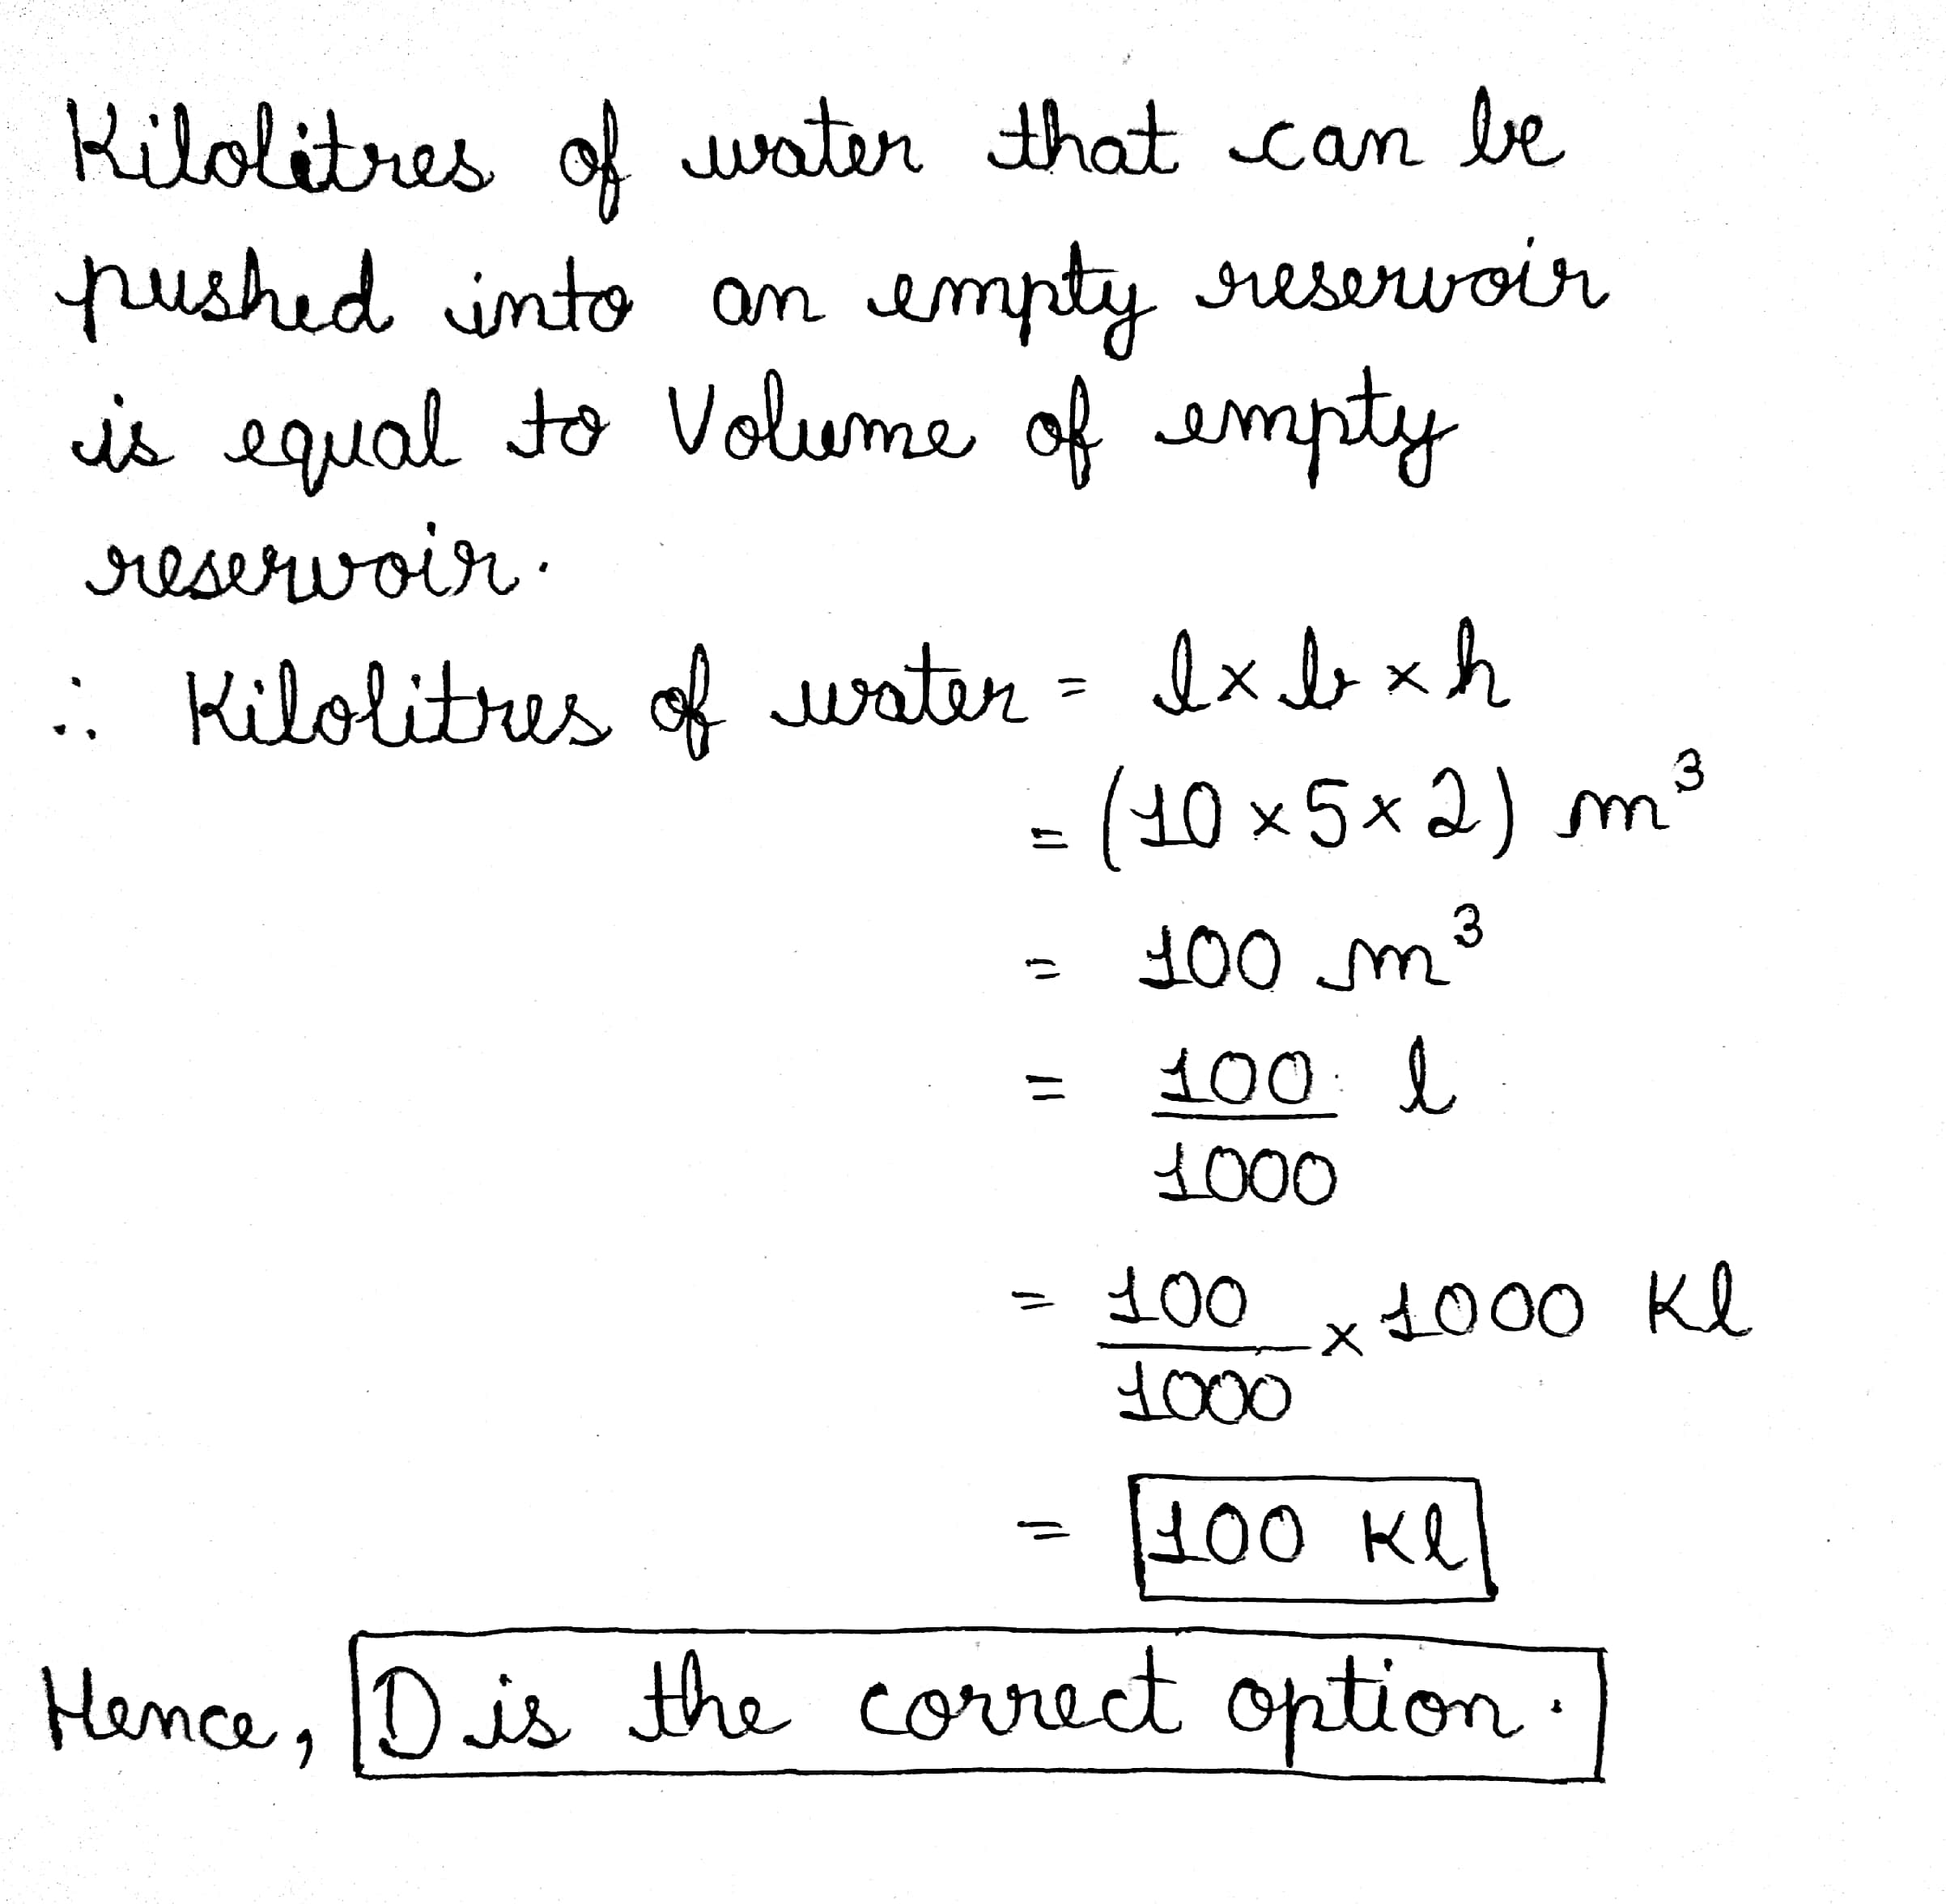 Kilolitres of water that can be
pushed into an empty reservoir
is equal to Volume of empty
reservoir.
∴ Kilolitres of water = l × b × h
= (10 × 5 × 2) m³
= 100 m³
= 100/1000 l
= 100/1000 × 1000 Kl
= 100 Kl
Hence, D is the correct option.